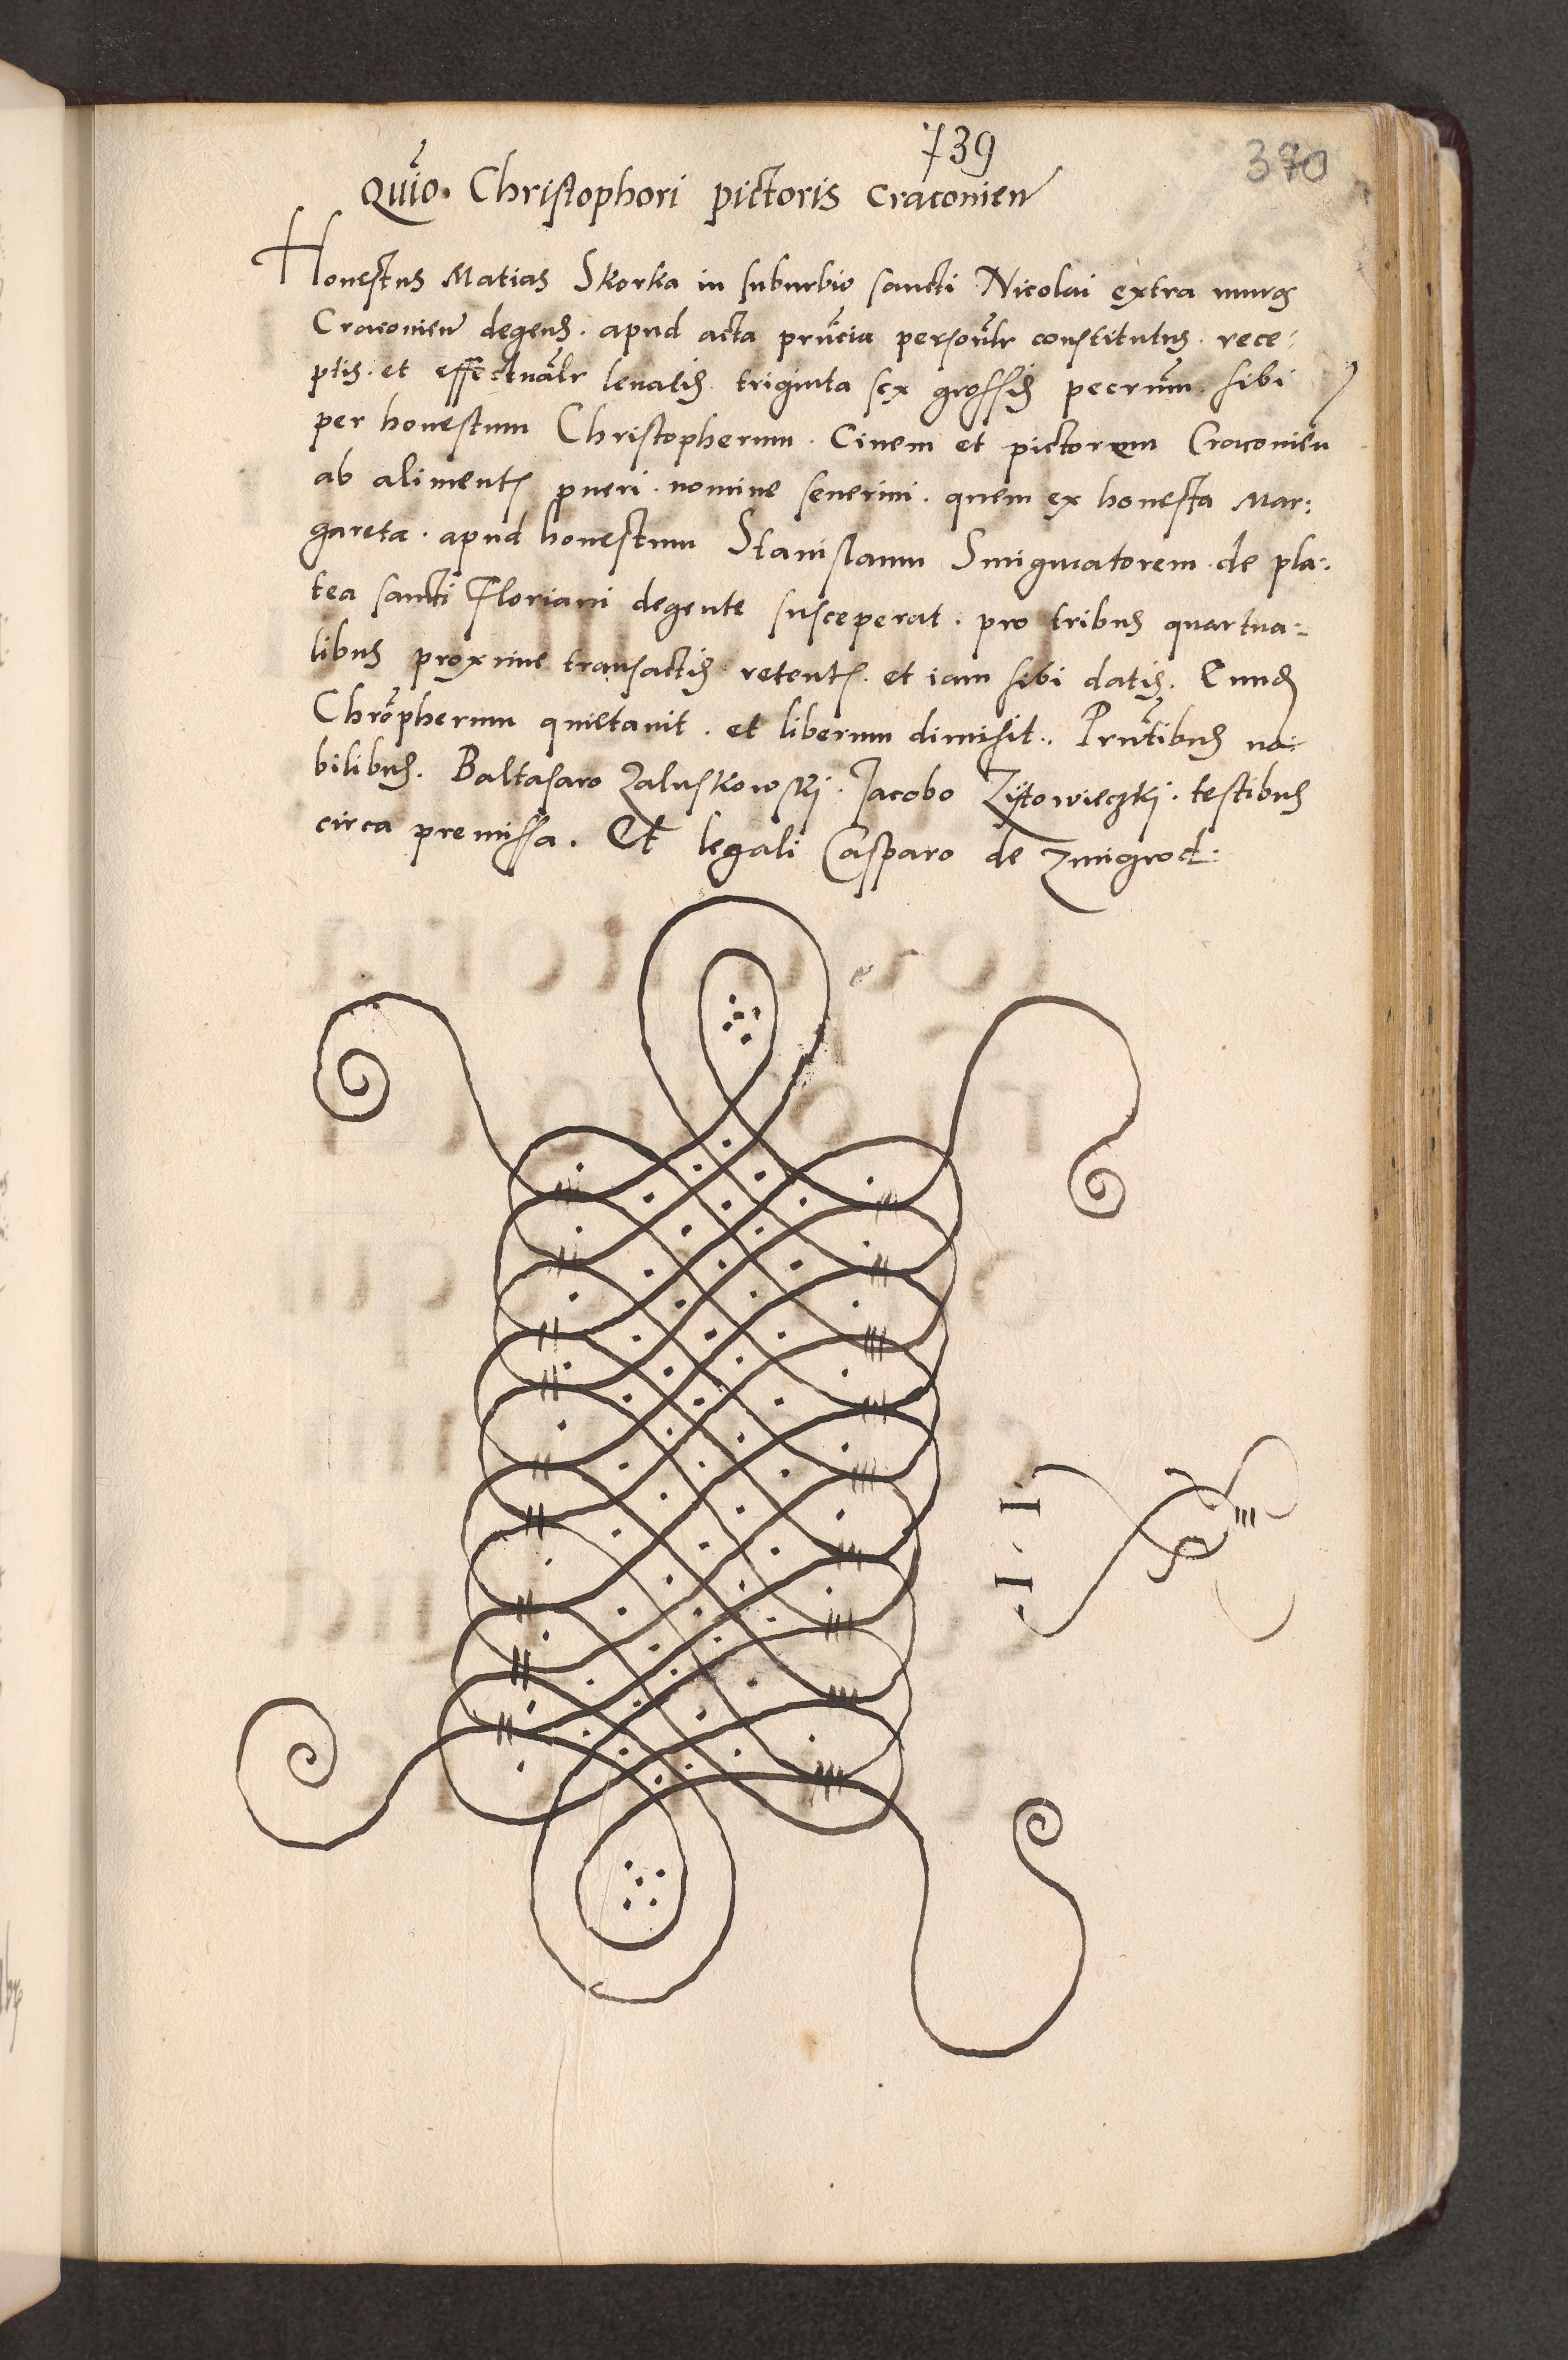 739
370
Quio. Christophori pictoris Cracovien
Honestus Matias Skorka in suburbio sancti Nicolai extra muros
Cracovien degens. apud acta pruncia personlr constitutus. rece:
ptis. et effectualr levatis. triginta sex grossis pecrum. sibi
per honestum Christopherum. Civem et pictorem Cracovien
ab alimentis pueri. nomine severini. quem ex honesta Mar:
gareta. apud honestum Stanislaum Smigmatorem. de pla:
tea sancti Floriani degente susceperat. pro tribus quartua:
libus proxime transactis retentis. et iam sibi datis. Eund
Chropherum quietavit. et liberum dimisit.. Prntibus no:
bilibus. Baltasaro Zaluskowskj. Jacobo Zijtowieczkj. testibus
circa premissa. Et legali Casparo de Zmigrod: